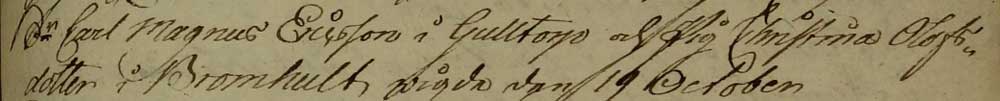 Dr. Carl Magnus Ericsson i Gulltorp och Pig. Christina Olofs-
dotter i Bromhult, wigda den 19 October